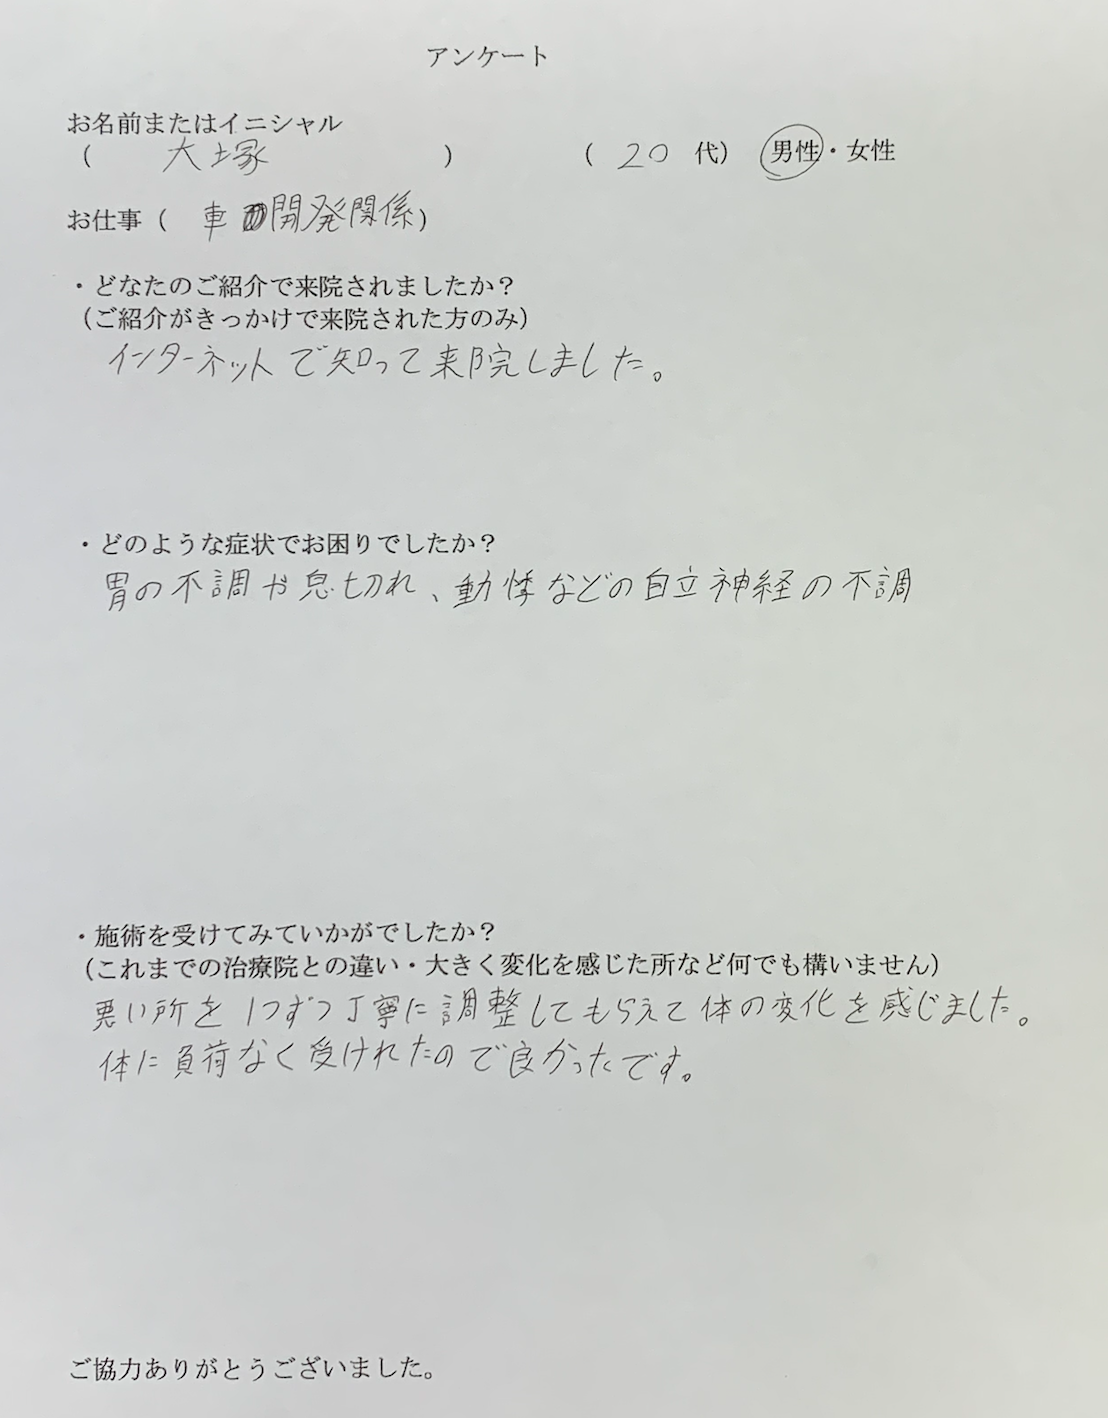 アンケート
お名前またはイニシャル
( 大塚 ) ( 20 代) 男性・女性
お仕事 ( 車 開発関係)
・どなたのご紹介で来院されましたか?
(ご紹介がきっかけで来院された方のみ)
インターネットで知って来院しました。
・どのような症状でお困りでしたか?
胃の不調や息切れ、動悸などの自立神経の不調
・施術を受けてみていかがでしたか?
(これまでの治療院との違い・大きく変化を感じた所など何でも構いません)
悪い所を1つずつ丁寧に調整してもらえて体の変化を感じました。
体に負荷なく受けれたので良かったです。
ご協力ありがとうございました。